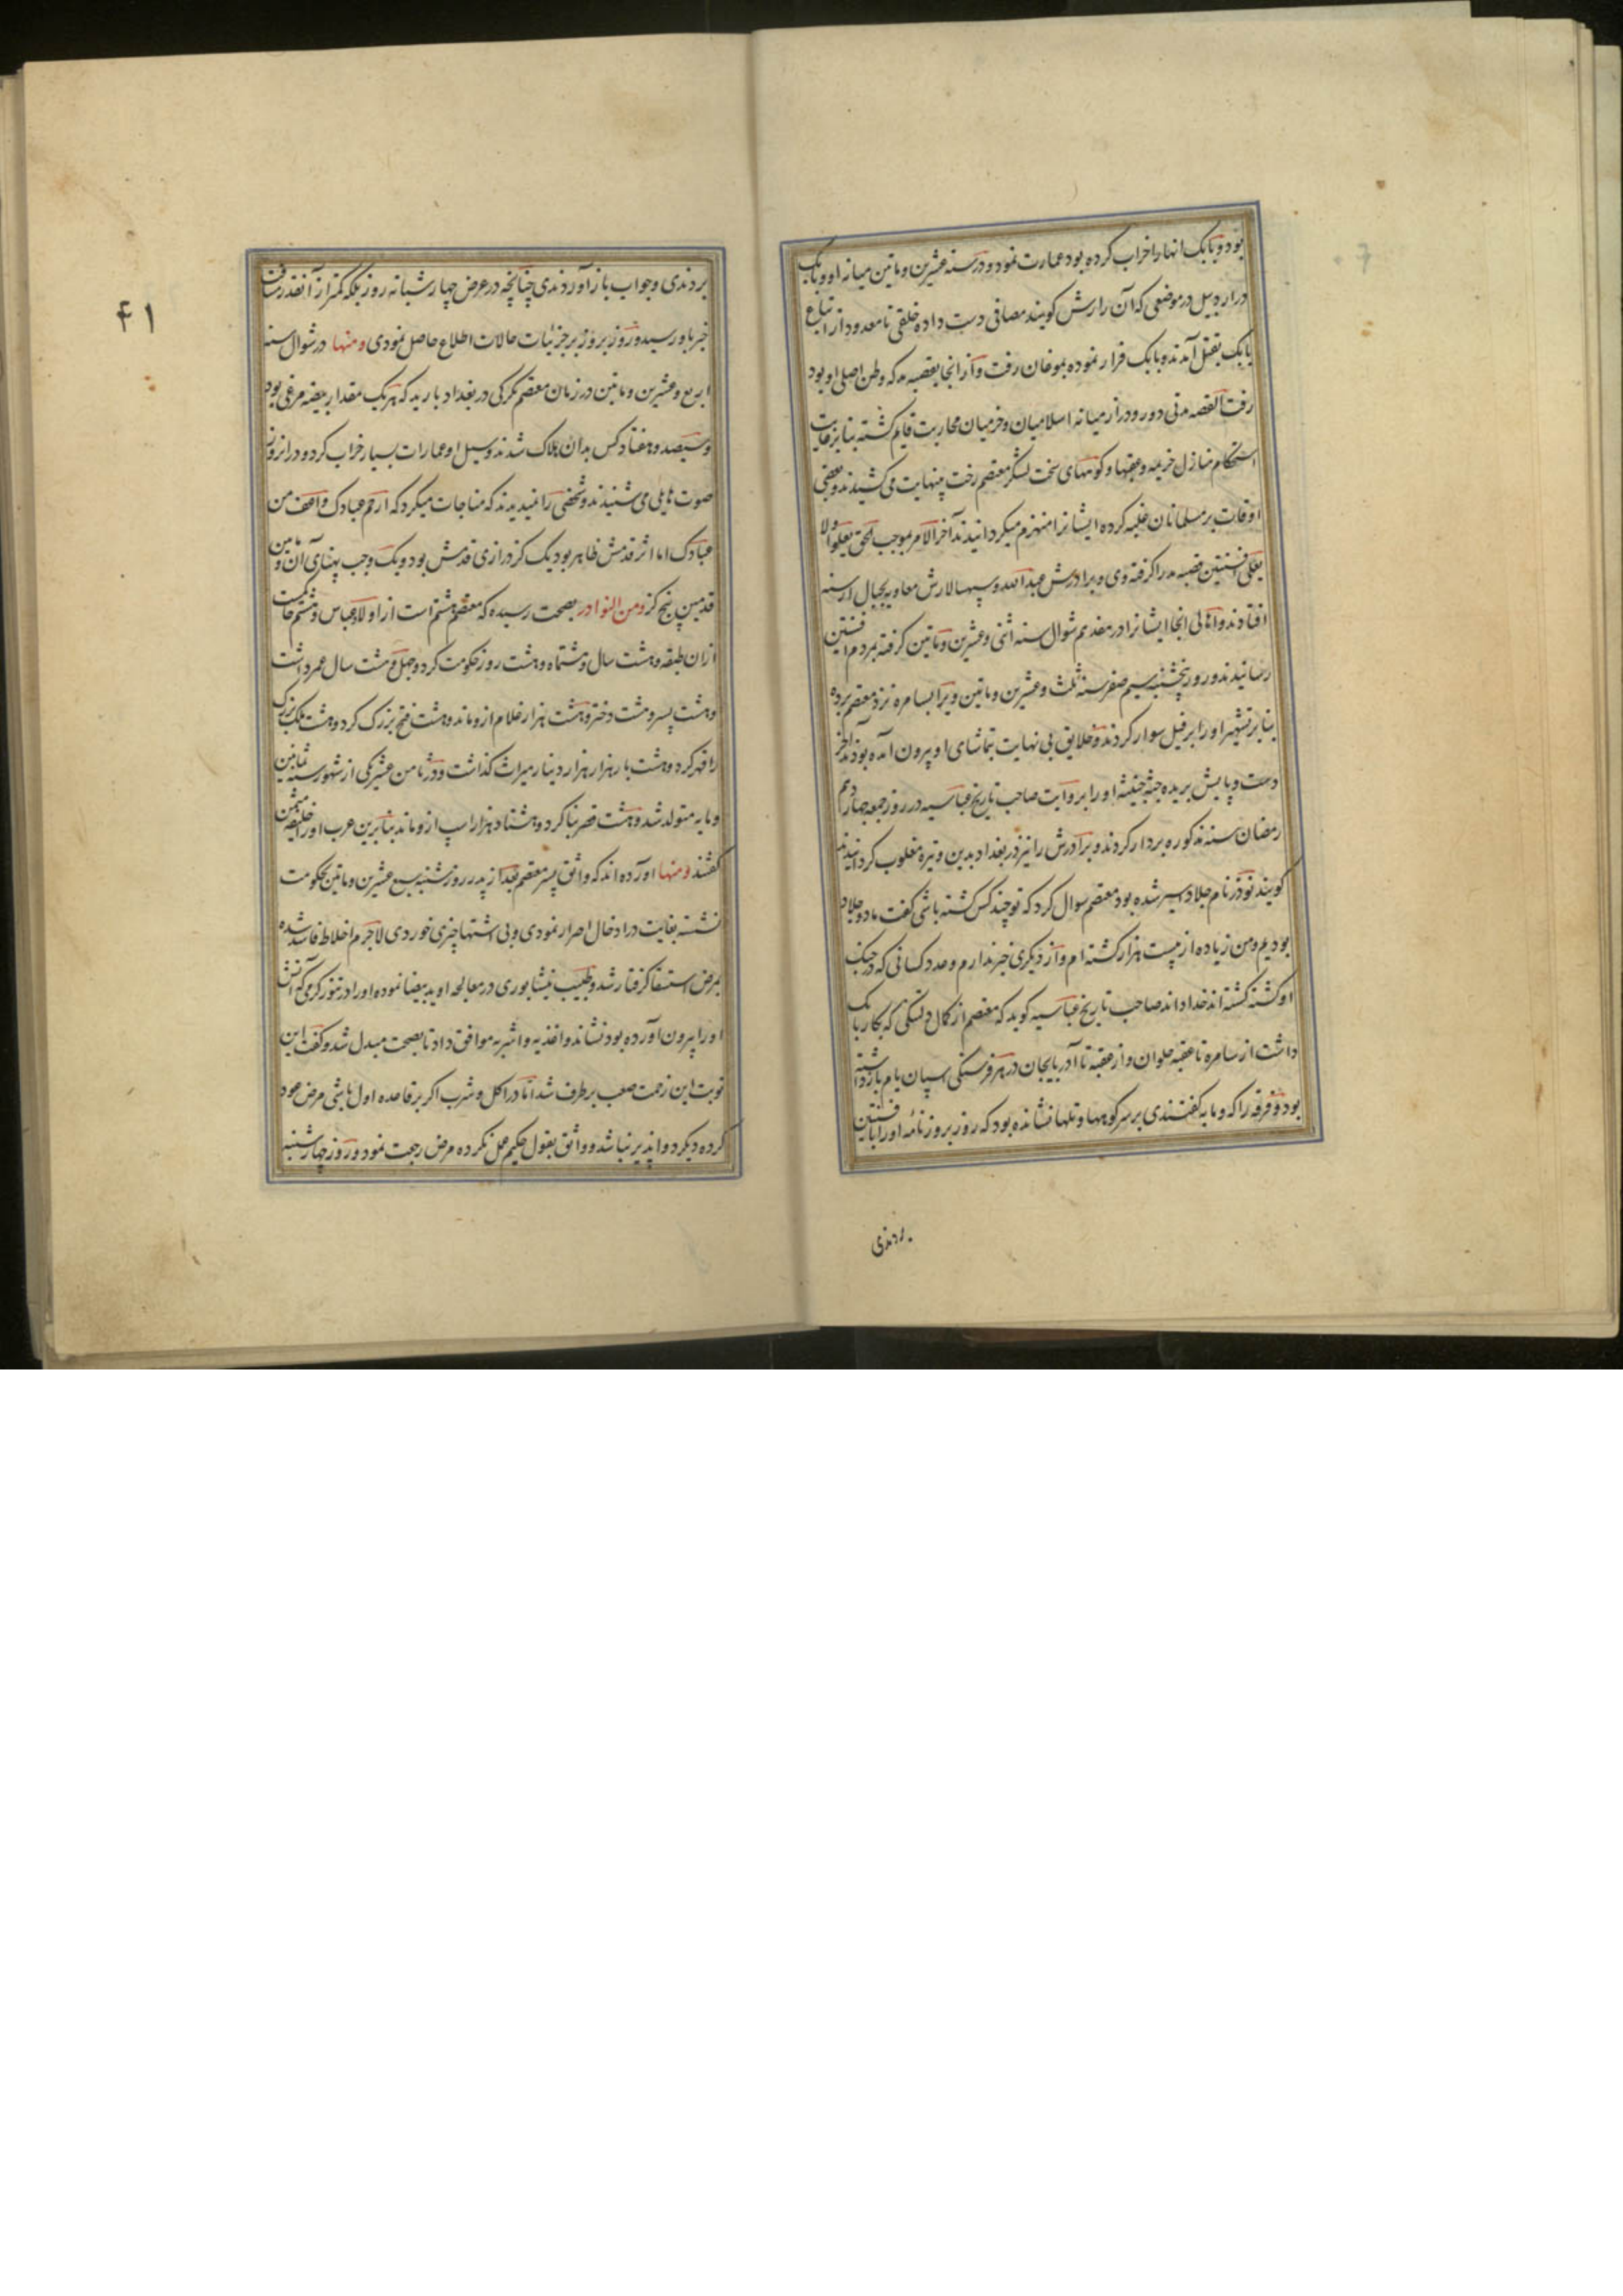 بود و بابک انها را خراب کرده بود عمارت نمود و در سنه عشرین و ماتین میانه او و بابک
در اردبیل در موضعی که آن را رش کویند مصافی دست داده خلقی نامعدود از اتباع
بابک بقتل آمدند و بابک فرار نموده بموغان رفت و از انجا بقصبه بد که وطن اصلی او بود
رفت القصه مدتی دور و دراز میانه اسلامیان و خرمیان محاربت قایم کشته بنابر غایت
استحکام منازل خرمیه و عقبها و کوههای سخت لشکر معتصم زحمت بینهایت می کشیدند و بعضی
اوقات بر مسلمانان غلبه کرده ایشانرا منهزم میکردانیدند آخر الامر بموجب الحق یعلو ولا
یعلی افشین قصبه بد را کرفته وی و برادرش عبدالله و سپهسالارش معاویه بجبال ارمنیه
افتادند و اهالی انجا ایشانرا در مقدم شوال سنه اثنی و عشرین و ماتین کرفته بمردم افشین
رسانیدند و روز پنجشنبه سیم صفر سنه ثلث و عشرین و ماتین ویرا بسامره نزد معتصم برده
بنابر تشهیر او را بر فیل سوار کردند و خلایق بی نهایت بتماشای او بیرون آمده بودند آخر
دست و پایش بریده جیفه خبیثه او را بروایت صاحب تاریخ عباسیه در روز جمعه چهاردهم
رمضان سنه مذکوره بردار کردند و برادرش را نیز در بغداد بدین وتیره مغلوب کردانیدند
کویند نوذر نام جلاد اسیر شده بود معتصم سوال کرد که تو چند کس کشته باشی کفت ما دو جلاد
بودیم و من زیاده از بیست هزار کشته ام و از دیکری خبر ندارم و عدد کسانی که در جنک
او کشته کشته اند خدا داند صاحب تاریخ عباسیه کوید که معتصم از کمال دلتنکی که بکار بابک
داشت از سامره تا عقبه حلوان و از عقبه تا آذربایجان در هر فرسنکی اسپان یام بازداشته
بود و فرقه را که و مایه کفتندی بر سر کوهها و تلها نشانده بود که روز بروز نامه او را بافشین
بردندی
بردندی و جواب باز آوردندی چنانچه در عرض چهار شبانه روز بلکه کمتر از آنقدر مسافت
خبر باو رسید و روز بروز بر جزئیات حالات اطلاع حاصل نمودی و منها در شوال سنه
اربع و عشرین و ماتین در زمان معتصم تکرکی در بغداد بارید که هر یک مقدار بیضه مرغی بود
و سیصد و هفتاد کس بدان هلاک شدند و سیل او عمارات بسیار خراب کرد و در انروز
صوت هایلی می شنیدند و شخصی را نمیدیدند که مناجات میکرد که ارحم عبادک و اعف من
عبادک اما اثر قدمش ظاهر بود یک کز درازی قدمش بود و یک وجب پهنای آن و مابین
قدمین پنج کز و من النوادر بصحت رسیده که معتصم هشتم است از اولاد عباس و هشتم حاکمیست
از ان طبقه و هشت سال و هشتماه و هشت روز حکومت کرد و چهل و هشت سال عمر داشت
و هشت پسر و هشت دختر و هشت هزار غلام ازو ماند و هشت فتح بزرک کرد و هشت ملک بزرک
را قهر کرد و هشت بار هزار هزار دینار میراث کذاشت و در ثامن عشر یکی از شهور سنه ثمانین
و مایه متولد شد و هشت قصر بنا کرد و هشتاد هزار اسپ ازو ماند بنابرین عرب او را خلیفه مثمن
کفتند و منها آورده اند که واثق پسر معتصم بعد از پدر روز شنبه سبع عشرین و ماتین بحکومت
نشسته بغایت در ادخال اصرار نمودی و بی اشتها چیزی خوردی لاجرم اخلاط فاسد شده
بمرض استسقا کرفتار شد و طبیب نیشابوری در معالجه او ید بیضا نموده او را در تنور کرمی که آتش
او را بیرون آورده بود نشاند و اغذیه و اشربه موافق داد تا بصحت مبدل شد و کفت این
نوبت این زحمت صعب برطرف شد اما در اکل و شرب اکر بر قاعده اول باشی مرض عود
کرده دیکر دواپذیر نباشد و واثق بقول حکیم عمل نکرده مرض رجعت نمود و روز چهارشنبه
۴۱